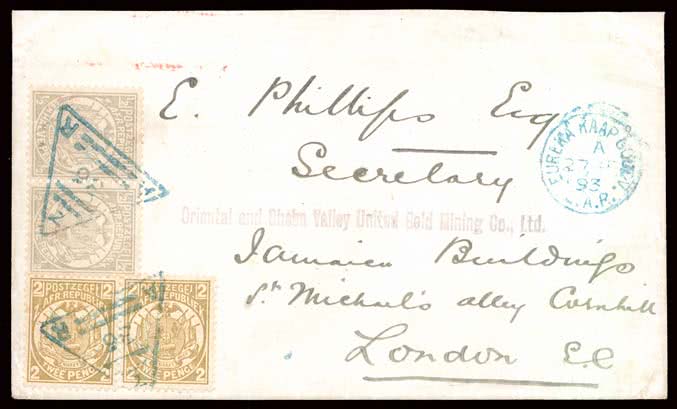 E. Phillips Esq
Secretary
Oriental and Sheba Valley United Gold Mining Co., Ltd.
Jamaica Buildings
St Michael's alley Cornhill
London E.C
EUREKA KAAP
A
27
93
Z.A.R.
POSTZEGEL
AFR.REPUBLIEK
POSTZEGEL
AFR.REPUBLIEK
2 POSTZEGEL 2
AFR.REPUBLIEK
2 TWEE PENCE 2
2 POSTZEGEL 2
AFR.REPUBLIEK
2 TWEE PENCE 2